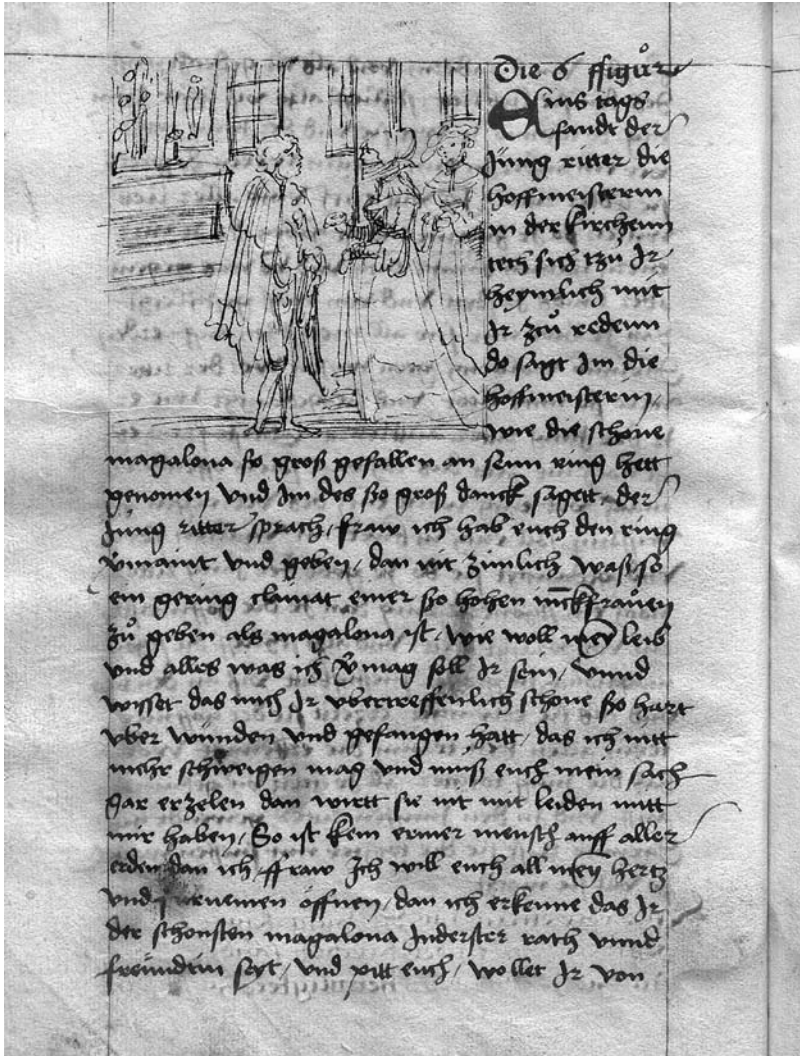 Die 6 ffigůr
Eins tags
fandt der
Jüng ritter die
hoffmeisterin
in der kirchenn
tech sich tzů Ir
heymlich mit
Ir zců redenn
do sagt Im die
hoffmeisterin,
wie die schone
magalona so groß gefallen an seim ring hett
genomen, Vnd Im des ßo groß danck sagett, der
Jüng ritter sprach, fraw ich hab euch den ring
v̈maint vnd geben, dan nit zimlich waß, so
ein gering clainat einer ßo hohen
zů geben als magalona ist, wie woll mey̅ leib
vnd alles was ich v̈mag soll Ir sein, vnnd
wisset das mich Ir vbertreffenlich schone ßo hart
vber wunden vnd gefangen hatt, das ich nitt
mehr schweigen mag vnd müß euch mein sach
gar erzelen dan wirtt sie nit mit leiden mitt
mir haben, So ist kein ermer mensch auff aller
erden dan ich, ffraw Ich will euch all mey̅ hertz
vnd öffnen, dan ich erkenne das Ir
der schonsten magalona Inderster rath vnnd
freündtin seyt, vnd pitt euch, wollet Ir von